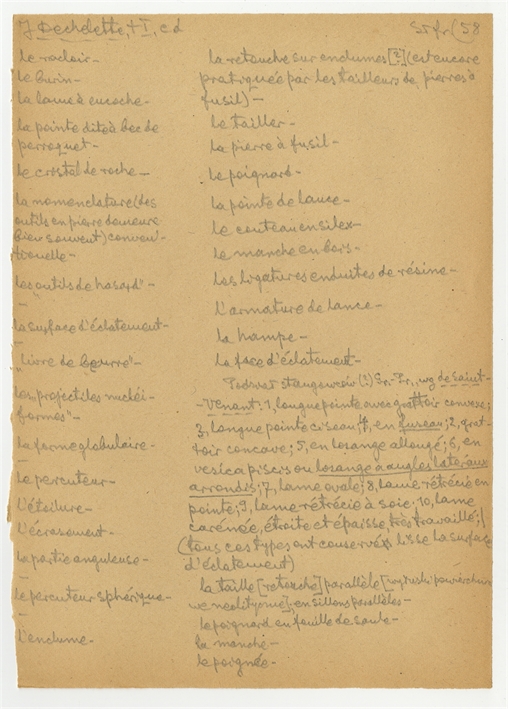 J Dechelette, t I, c d
Str fr (58
le racloir –
le burin –
la lame à encoche –
la pointe dite à bec de
perroquet –
le cristal de roche –
la nomenclature (des
outils en pierre demeure
bien souvent) conven-
tionelle –
les "outils de hasard" –
la surface d'éclatement –
"livre de beurre" –
les projectiles nucléi-
formes" –
la forme globulaire –
le percuteur –
l'étoilure –
l'écrasement –
la partie anguleuse –
le percuteur sphérique –
l'enclume –
la retouche sur enclumes [?] (est encore
pratiquée par les tailleurs de pierres à
fusil) –
le tailler –
la pierre à fusil –
le poignard –
la pointe de lance –
le couteau en silex –
le manche en bois –
les ligatures enduites de résine –
l'armature de lance –
la hampe –
la face d'éclatement –
(?) wg de Saint-
-Venant: 1, longue pointe avec grattoir convexe;
3, longue pointe ciseau; 4, en fuseau; 2, grat-
toir concave; 5, en losange allongé; 6, en
vesica piscis ou losange à angles lateraux
arrondis; 7, lame ovale; 8, lame rétrécie en
pointe; 9, lame rétrécie à soie; 10, lame
carénée, étroite et épaisse, très travaillé;
(tous ces types ont conservés lisse la surface
d'éclatement)
la taille [retouche] parallèle
en sillons parallèles –
le poignard en feuille de saule –
la manche –
le poignée –